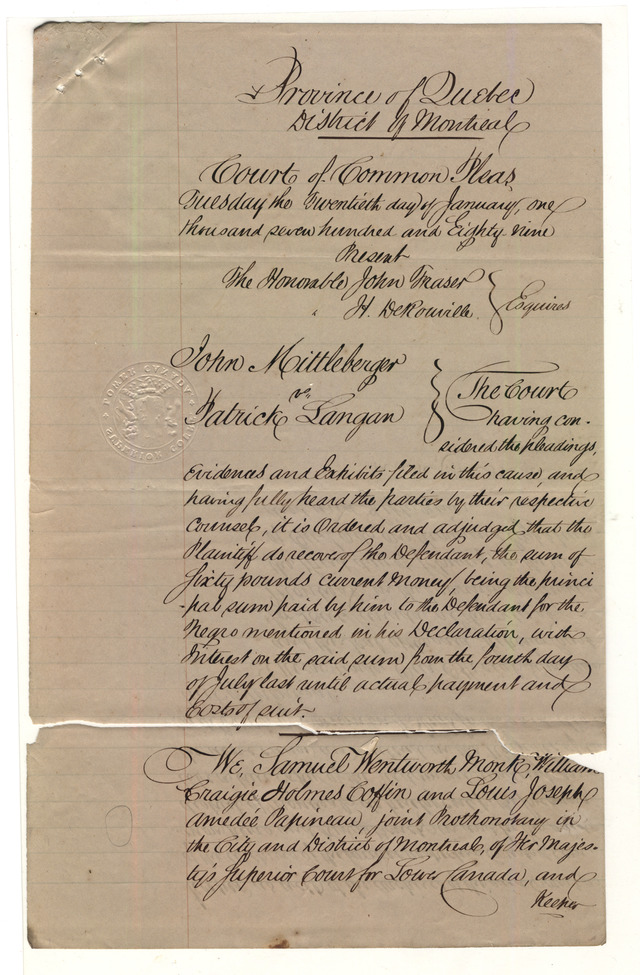 Province of Quebec
District of Montreal
Court of Common Pleas
Tuesday the Twentieth day of January, one
thousand seven hundred and Eighty nine
Present
The Honorable John Fraser
" H. DeRouville
Esquires
John Mittleberger
vs
Patrick Langan
The Court
having con-
sidered the pleadings,
Evidences and Exhibits filed in this cause, and
having fully heard the parties by their respective
counsel, it is Ordered and adjudged that the
Plaintiff do recover of the Defendant, the sum of
Sixty pounds current money, being the princi
-pal sum paid by him to the Defendant for the
Negro mentioned in his Declaration, with
Interest on the said sum from the fourth day
of July last until actual payment and
Costs of suit.
We, Samuel Wentworth Monk, William
Craigie Holmes Coffin and Louis Joseph
Amedée Papineau, joint Prothonotary in
the City and District of Montreal, of Her Majes-
ty's Superior Court for Lower Canada, and
Keeper